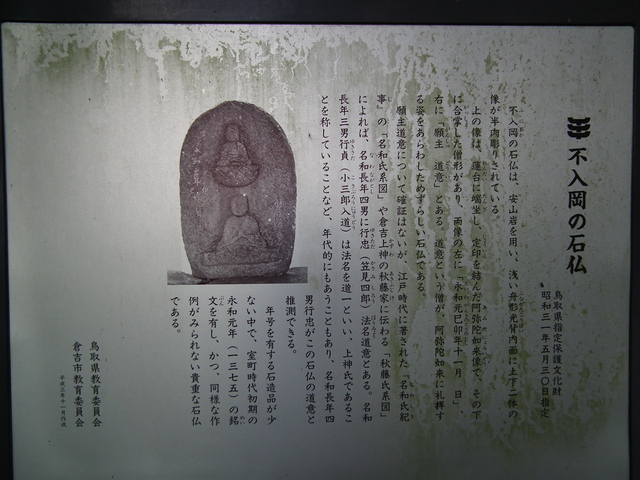 不入岡の石仏
鳥取県指定保護文化財
昭和三一年五月三〇日指定
不入岡の石仏は、安山岩を用い、浅い舟形光背内面に上下二体の
像が半肉彫りされている。
上の像は、蓮台に端坐し、定印を結んだ阿弥陀如来像で、その下
に合掌した僧形があり、両像の左に「永和元巳卯年十一月 日」
右に「願主 道意」とある。道意という僧が、阿弥陀如来に礼拝す
る姿をあらわしためずらしい石仏である。
願主道意について確証はないが、江戸時代に著された「名和氏紀
事」の「名和氏系図」や倉吉上神の秋藤家に伝わる「秋藤氏系図」
によれば、名和長年四男に行忠（笠見四郎）法名道意とある。名和
長年三男行貞（小三郎入道）は法名を道一といい、上神氏であるこ
とを称していることなど、年代的にもあうこともあり、名和長年四
男行忠がこの石仏の道意と
推測できる。
年号を有する石造品が少
ない中で、室町時代初期の
永和元年（一三七五）の銘
文を有し、かつ、同様な作
例がみられない貴重な石仏
である。
鳥取県教育委員会
倉吉市教育委員会